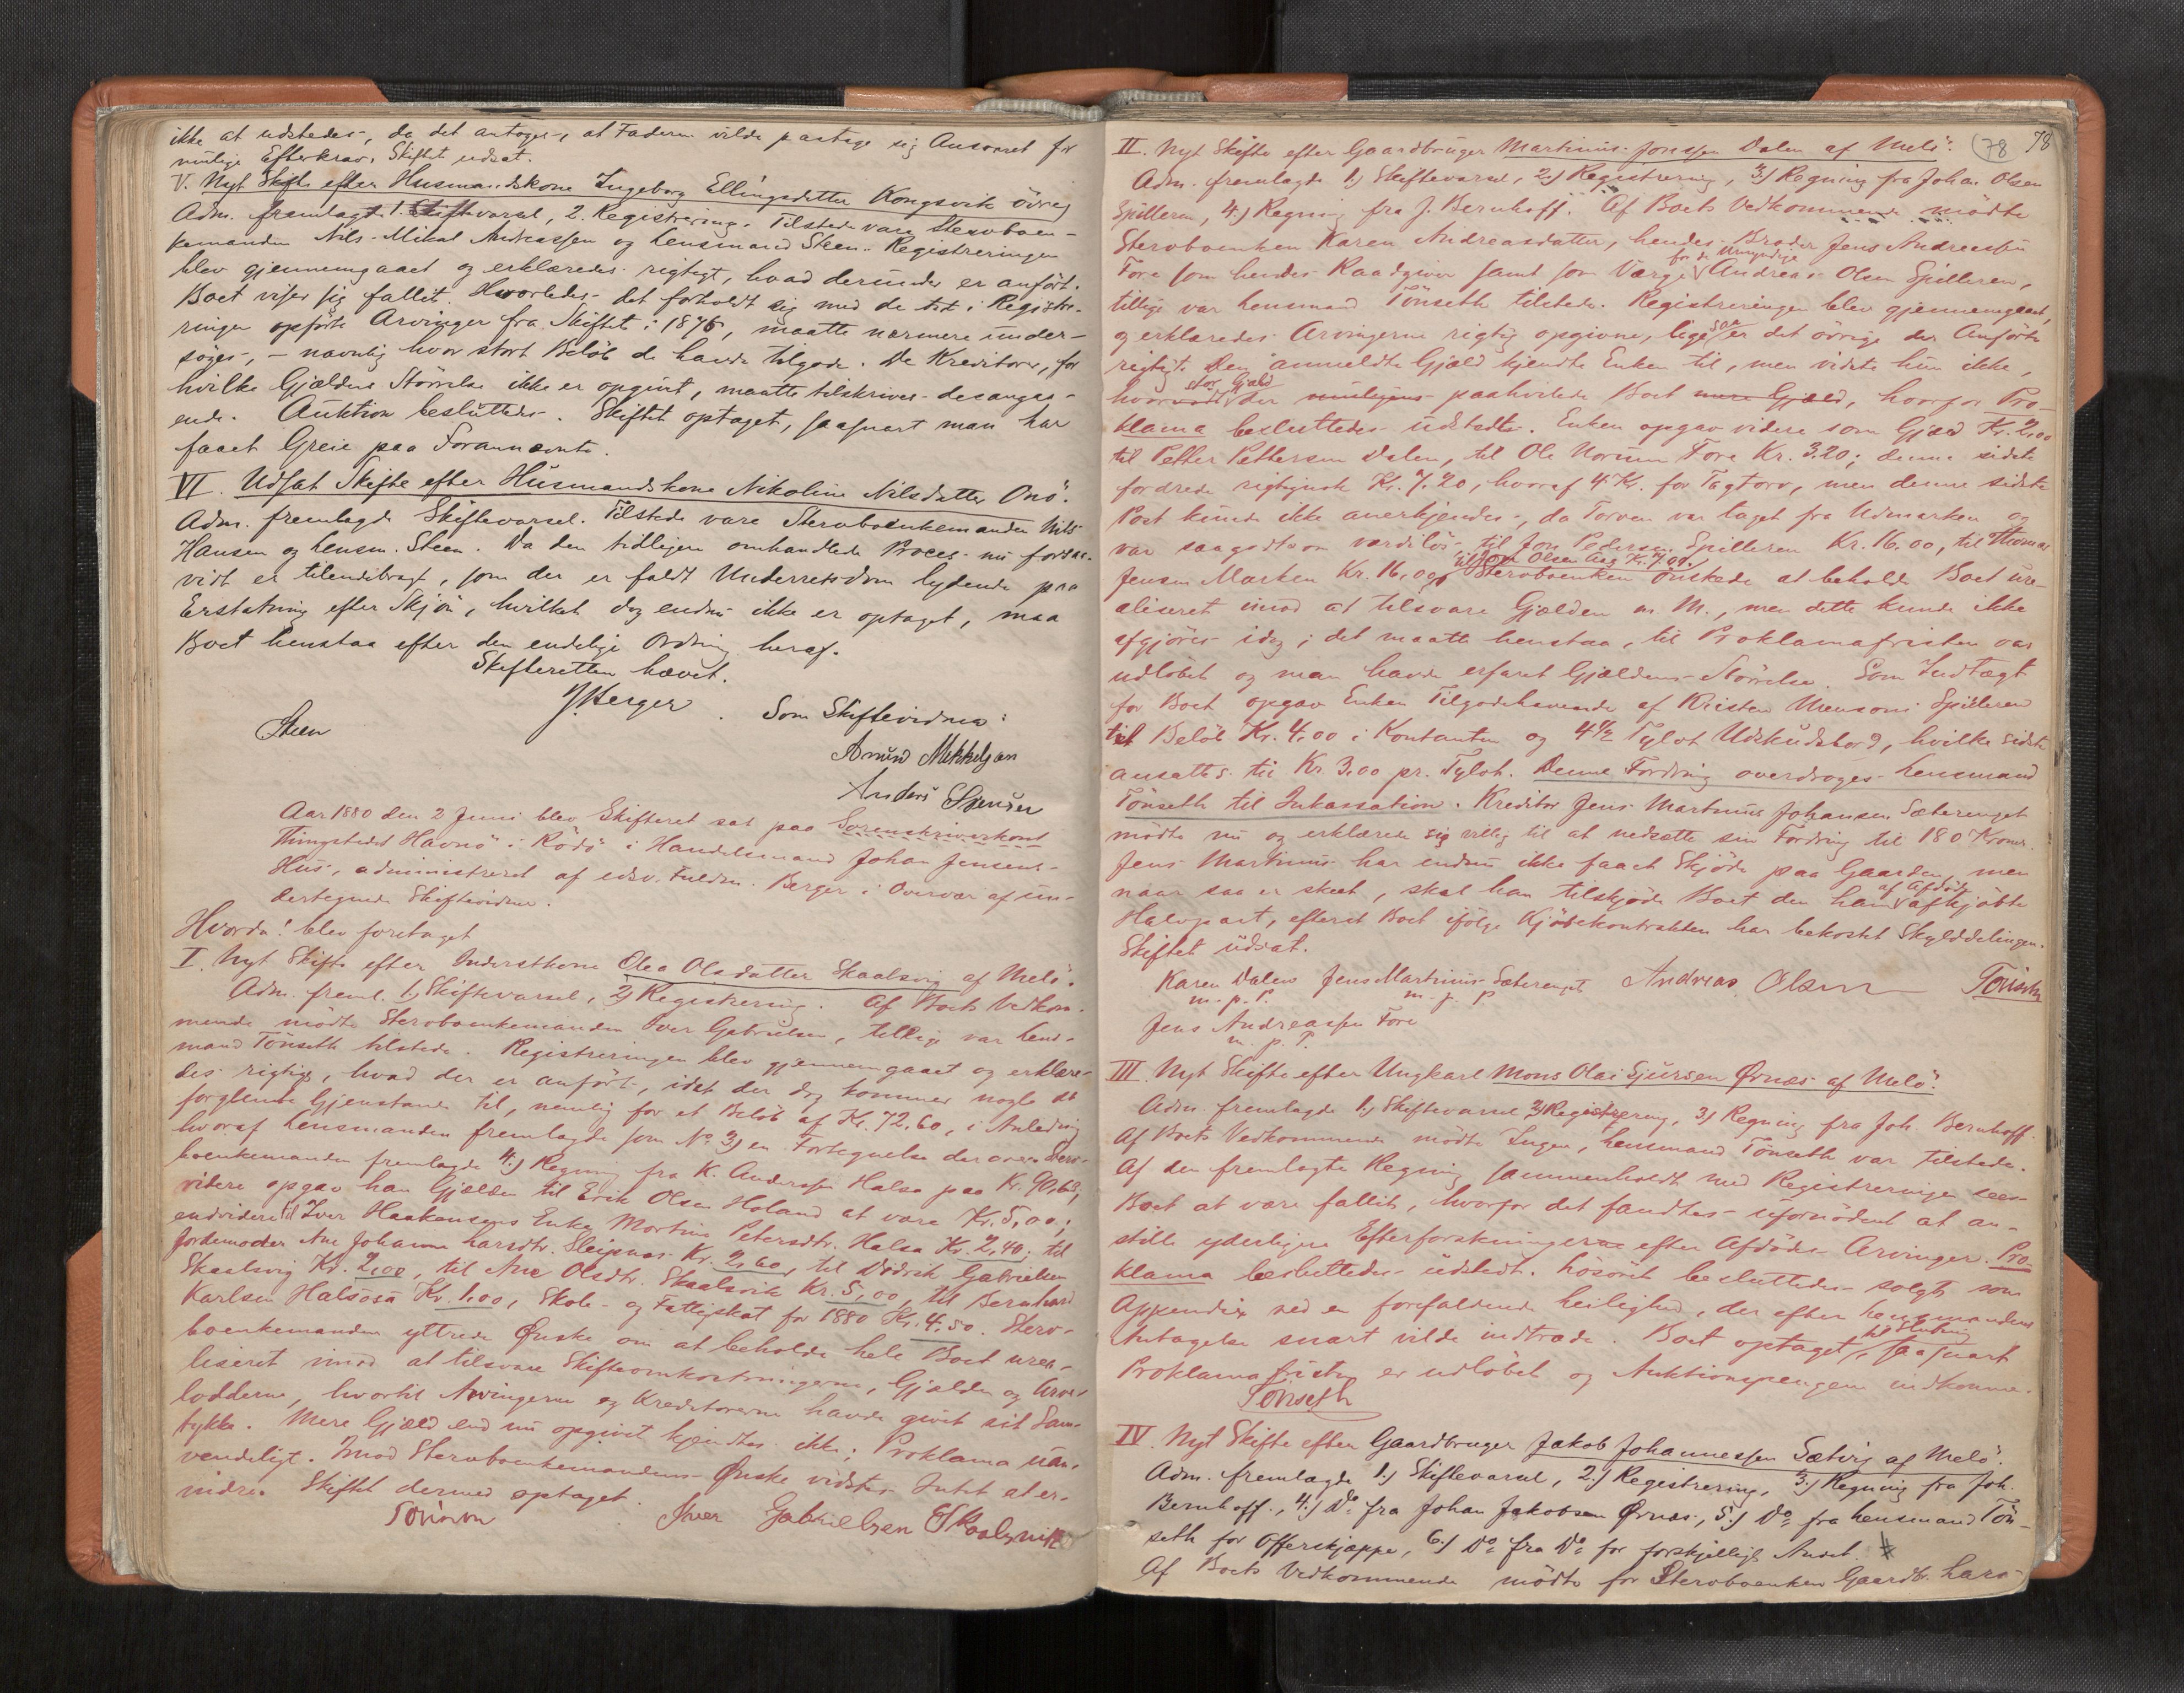 ikke at udstedes, da det antoges, at Faderen vilde paatage sig Ansvaret for
mulige Efterkrav. Skiftet udsat.
V. Nyt Skifte efter Husmandskone Ingeborg Ellingsdatter Kongsvik övre,
Adm. fremlagde 1. Skiftevarsel, 2. Registrering. Tilstede vare Stervboen-
kemanden Nils Mikal Andreassen og Lensmand Steen. Registreringen
blev gjennemgaaet og erklæredes rigtigt, hvad derunder er anført.
Boet viser sig fallit. Hvorledes det forholdt sig med de i Registre-
ringen opførte Arvinger fra Skiftet i 1876, maatte nærmere under-
söges, – navnlig hvor stort Beløb de havde tilgode. De Kreditorer, for
hvilke Gjældens Störrelse ikke er opgivet, maatte tilskrives desangaa-
ende. Auktion besluttedes. Skiftet optaget, saasnart man har
faaet Greie paa Forannævnte.
VI. Udsat Skifte efter Husmandskone Nikoline Nilsdatter Onö.
Adm. fremlagde Skiftevarsel. Tilstede vare Stervboenkemanden Nils
Hansen og Lensm. Steen. Da den tidligere omhandlede Proces nu forsaa-
vidt er tilendebragt, som der er faldt Underretsdom lydende paa
Erstatning efter Skjön, hvilket dog endnu ikke er optaget, maa
Boet henstaa efter den endelige Ordning heraf.
Skifteretten hævet.
Berger
Steen
Som Skiftevidner:
Arnund Mikkelsen
Anders
Aar 1880 den 2 Juni blev Skifteret sat paa Sorenskriverkont
Thingstedet Havnö i Rödö i Handelsmand Johan Jensens
Hus, administreret af edsv. Fuldm. Berger i Overvær af un-
dertegnede Skiftevidner.
Hvorda! blev foretaget
I. Nyt Skifte efter Inderstkone Olea Olsdatter Skaalsvig af Melö.
Adm. freml. 1) Skiftevarsel, 2) Registrering. Af Boets Vedkom-
mende mödte Stervboenkemanden Iver Gabrielsen, tillige var Lens-
mand Tönseth tilstede. Registreringen blev gjennemgaaet og erklære-
des rigtige, hvad der er anfört, idet der dog kommer nogle
forglemte Gjenstande til, nemlig for et Beløb af Kr. 72,60, i Anledning
hvoraf Lensmanden fremlagde som No 3) en Fortegnelse derover. Sterv-
boenkemanden fremlagde 4.) Regning fra K. Anderssen Halsa paa Kr. 90,68,
videre opgav han Gjælden til Erik Olsen Holand at være Kr. 5,00;
endvidere til Iver Haakensens Enke Martine Petersdtr. Halsa Kr. 2,40; til
Jordemoder Ane Johanna Larsdtr. Sleipnes Kr. 2,60, til Didrik Gabrielsen
Skaalsvig Kr. 2,00, til Ane Olsdtr. Skaalsvik Kr. 5,00, til Bernhard
Karlsen Halsosa Kr. 1.00, Skole- og Fattigskat for 1880 Kr. 4,50. Sterv-
boenkemanden yttrede Ønske om at beholde hele Boet urea-
liseret imod at tilsvare Skifteomkostningerne, Gjælden og Arve-
lodderne, hvortil Arvingerne og Kreditorerne havde givet sit Sam-
tykke. Mere Gjæld end nu opgivet kjendtes ikke; Proklama uan-
vendeligt. Imod Stervboenkemandens Ønske vidstes Intet at er-
indre. Skiftet dermed optaget.
Iver Gabrielsen Skaalsvik
78 78
II. Nyt Skifte efter Gaardbruger Martinus Jonssen Dalen af Melö.
Adm. fremlagde 1.) Skiftevarsel, 2.) Registrering, 3.) Regning fra Johan Olsen
Spilderen, 4.) Regning fra J. Bernhoff. Af Boets Vedkommende mödte
Stervboenken Karen Andreasdatter, hendes Broder Jens Andreassen
Fore som hendes Raadgiver samt som Værge for de Umyndige Andreas Olsen Spilderen,
tillige var Lensmand Tönseth tilstede. Registreringen blev gjennemgaaet,
og erklæredes Arvingerne rigtig opgivne, ligesaa er det övrige der Anförte
rigtigt. Den anmeldte Gjæld kjendte Enken til, men vidste hun ikke,
hvor stor Gjæld der paahvilede Boet mere Gjæld, hvorfor Pro-
klama besluttedes udstedt. Enken opgav videre som Gjæld Kr. 2,00
til Petter Pettersen Dalen, til Ole Norum Fore Kr. 3.20; denne sidste
fordrede rigtignok Kr. 7.20, hvoraf 4 Kr. for Tagtorv, men denne sidste
Post kunde ikke anerkjendes, da Torven var taget fra Udmarken og
var saagodtsom værdilös, til Jon Pedersen Spilderen Kr. 16.00, til Thomas
Jensen Marken Kr. 16,00, til Olsen Aag Kr. 7.00. Stervboenken önskede at beholde Boet ure-
aliseret imod at tilsvare Gjælden m. M., men dette kunde ikke
afgjöres idag; det maatte henstaa, til Proklamafristen var
udløbet og man havde erfaret Gjældens Störrelse. Som Indtægt
for Boet opgav Enken Tilgodehavende af Kristen Monsen Spilderen
til Beløb Kr. 4,00 i Kontanter og 4 1/2 Tylvt Udskudsbord, hvilke sidste
ansattes til Kr. 3,00 pr. Tylvt. Denne Fordring overdroges Lensmand
Tönseth til Inkassation. Kreditor Jens Martinus Johansen Sæterenget
mödte nu og erklærede sig villig til at nedsætte sin Fordring til 180 Kroner.
Jens Martinus har endnu ikke faaet Skjöde paa Gaarden, men
naar saa er skeet, skal han tilskjöde Boet den ham af Afdöde afkjøbte
Halvpart, efterat Boet ifölge Kjøbekontrakten har bekostet Skylddelingen.
Skiftet udsat.
Karen Dalen Jens Martinus Sæterenget Andreas Olsen Tönseth
m. p. P. m. p. P
Jens Andreassen Fore
m. p. P.
III. Nyt Skifte efter Ungkarl Mons Olai Sjursen Ørnæs af Melö.
Adm. fremlagde 1.) Skiftevarsel 2) Registrering, 3) Regning fra Joh. Bernhoff.
Af Boets Vedkommende mödte Ingen, Lensmand Tönseth var tilstede.
Af den fremlagte Regning sammenholdt med Registreringen sees
Boet at være fallit, hvorfor det fandtes ufornödent at an-
stille yderligere Efterforskninger efter Afdödes Arvinger. Pro-
klama besluttedes udstedt. Lösöret besluttedes solgt som
Appendix ved en forefaldende Leilighed, der efter Lensmandens
Antagelse snart vilde indtræde. Boet optaget til Slutning, saasnart
Proklamafristen er udlöbet og Auktionspengene indkomne.
Tönseth
IV. Nyt Skifte efter Gaardbruger Jakob Johannessen Sætvig af Melö.
Adm. fremlagde 1.) Skiftevarsel, 2.) Registrering, 3.) Regning fra Joh.
Bernhoff., 4.) Do fra Johan Jakobsen Ørnæs, 5.) Do fra Lensmand Tön-
seth for Offerskjæppe, 6.) Do fra Do for forskjelligt Andet.
Af Boets Vedkommende mödte for Stervboenken Gaardbr. Lars